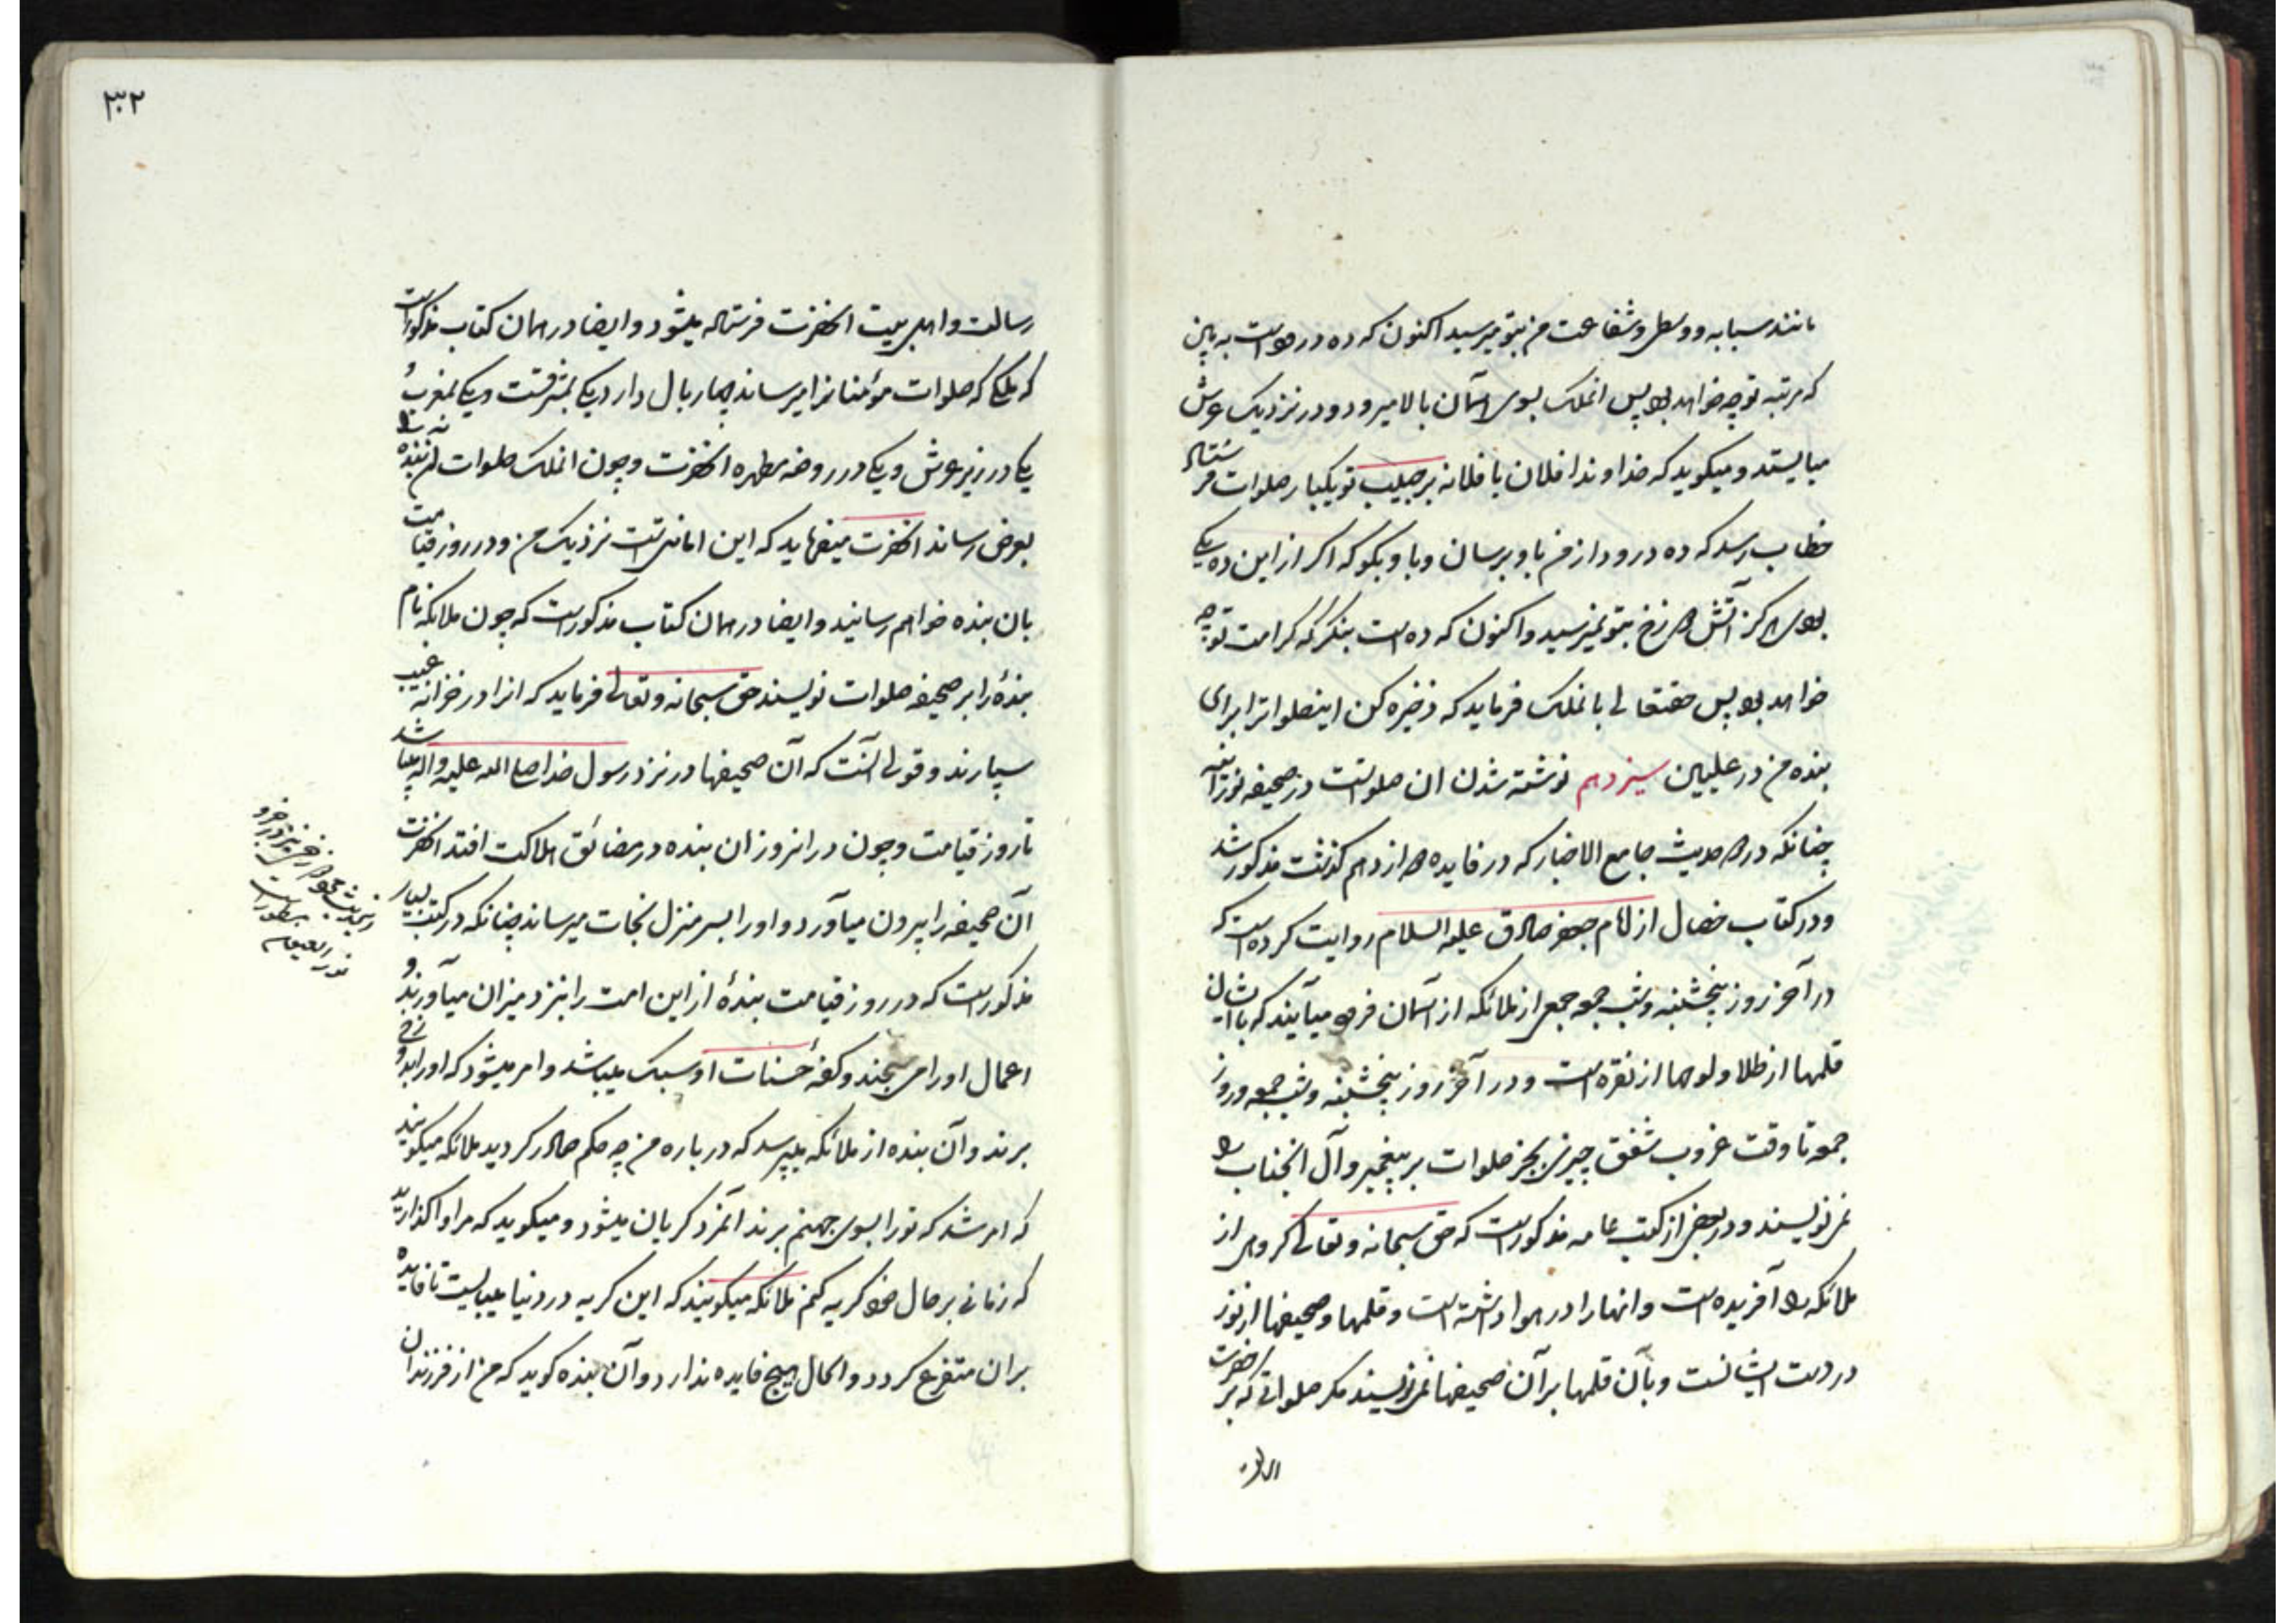 مانند سبابه و وسطی و شفاعت من بتو میرسید اکنون که ده درود است به بین
که مرتبه تو چه خواهد بود پس انملک بسوی آسمان بالا میرود و در نزدیک عرش
میایستد و میکوید که خداوندا فلان یا فلانه بر حبیب تو یکبار صلوات فرستاد
خطاب رسد که ده درود از من باو برسان و باو بکو که اکر از این ده یکی
بودی هرکز آتش دوزخ بتو نمیرسید و اکنون که ده است بنکر که کرامت تو چه
خواهد بود پس حقتعالی بانملک فرماید که ذخیره کن اینصلواترا برای
بنده من در علیین سیزدهم نوشته شدن ان صلواتست در صحیفه نورانیه
چنانکه در حدیث جامع الاخبار که در فایده دوازدهم کذشت مذکور شد
و در کتاب خصال از امام جعفر صادق علیه السلام روایت کرده است که
در آخر روز پنجشنبه و شب جمعه جمعی از ملائکه از آسمان فرود میآیند که با ایشان
قلمها از طلا و لوحها از نقره است و در آخر روز پنجشنبه و شب جمعه و روز
جمعه تا وقت غروب شفق چیزی بجز صلوات بر پیغمبر و آل انجناب را
نمی نویسند و در بعضی از کتب عامه مذکور است که حق سبحانه و تعالی کروهی از
ملائکه را آفریده است و انها را در هوا داشته است و قلمها و صحیفها از نور
در دست ایشانست و بآن قلمها بر آن صحیفها نمی نویسند مکر صلواتی که بر حضرت
رسالت
۳۰۲
رسالت و اهل بیت انحضرت فرستاده میشود و ایضا در همان کتاب مذکور است
که ملکی که صلوات مؤمنانرا میرساند چهار بال دارد یکی بمشرقست و یکی بمغرب و
یکی در زیر عرش و یکی در روضه مطهره انحضرت و چون انملک صلوات آن بنده را
بعرض رساند انحضرت میفرماید که این امانتی است نزدیک من و در روز قیامت
بان بنده خواهم رسانید و ایضا در همان کتاب مذکور است که چون ملائکه نام
بنده را بر صحیفه صلوات نویسند حق سبحانه و تعالی فرماید که انرا در خزانه غیب
سپارند و قولی آنست که آن صحیفها در نزد رسول خدا صلی الله علیه و اله میباشد
تا روز قیامت و چون در انروز ان بنده در مضائق هلاکت افتد انحضرت
آن صحیفه را بیرون میآورد و او را بسر منزل نجات میرساند چنانکه در کتب بسیار
مذکور است که در روز قیامت بنده از این امت را بنزد میزان میآورند و
اعمال او را می سنجند و کفه حسنات او سبک میباشد و امر میشود که او را بدوزخ
برند و آن بنده از ملائکه میپرسد که در باره من چه حکم صادر کردید ملائکه میکویند
که امر شد که تو را بسوی جهنم برند آنمرد کریان میشود و میکوید که مرا واکذارید
که زمانی بر حال خود کریه کنم ملائکه میکویند که این کریه در دنیا میبایست تا فایده
بران متفرع کردد و الحال هیچ فایده ندارد و آن بنده کوید که من از فرزندان